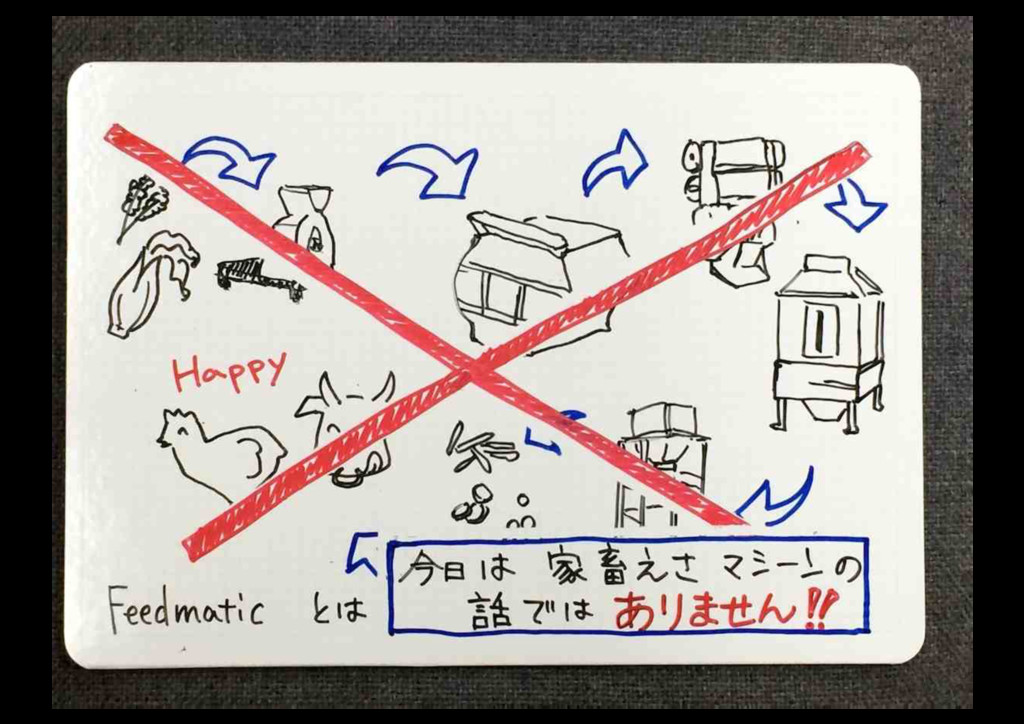 Happy
Feedmatic とは
今日は 家畜えさ マシーンの
話では ありません!!